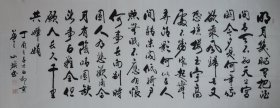 明月幾時有把酒
問青天不知天宮
闕今夕是何年我
欲乘風歸去又恐
瓊樓玉宇高處不
勝寒起舞弄清影
何似在人
間轉朱閣低綺戶
照無眠不應有恨
何事長向別時
圓人有悲歡離合
月有陰晴圓缺
此事古難全但
願人長久千里
共嬋娟